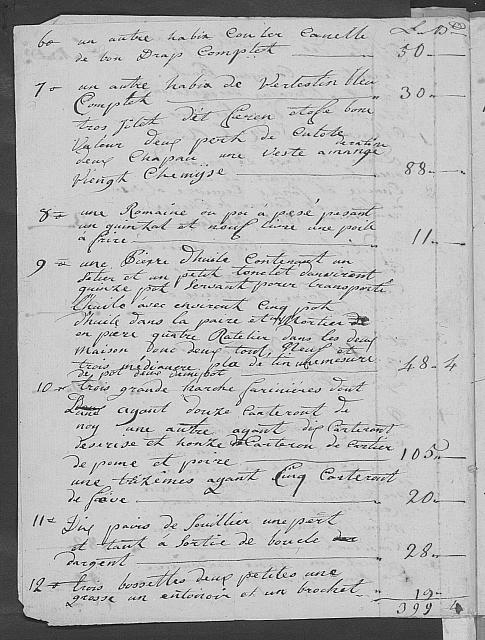 6o un autre habis couler canelle
de bon Drap Complet 50
7o un autre habis de bleu
Complet 30
tros Jilet d'êt
Valeur deux de Culote
deux Chapau une veste
Vienght Chemise 88
8o une Romaine ou poi à pesé pesant
un quintat et neuf livre une poile
à frire 11
9o une Pierre d'huile Contenant un
Setier et un petit tonelet d'environt
quinze pot Servant pour transporté
L'huile avec environt Cinq pot
d'huile dans la paire et Mortier
en piere quatre Ratelier dans les deux
maison donc deux Neuf et
trois de mesure
de pot deux demi pot 48 4
10o trois grande harche farinières dont
ayant douze Carteront de
noy une autre ayant dix Carteront
de serise et honze Carteron de Cartier
de pome et poire 105
une troixemes ayant Cinq Carteront
de fève 20
11o Dix paires de Soullier
et tant à Sortie de boucle
d'argent 28
12o trois bossettes deux petites une
grosse un entonoir et un brochet 19
399 4